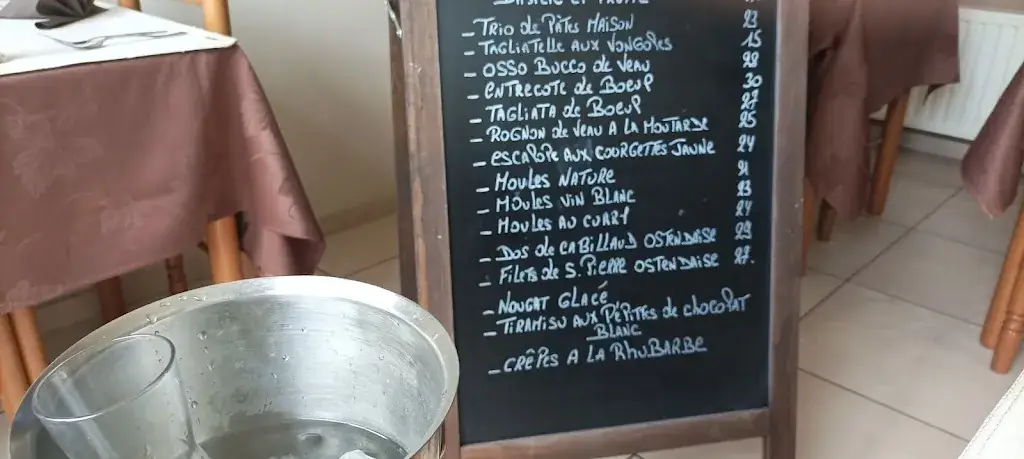 - Trio de Pâtes Maison 23
- Tagliatelle aux Vongoles 15
- Osso Bucco de Veau 28
- Entrecote de Boeuf 30
- Tagliata de Boeuf 27
- Rognon de Veau a la Moutarde 25
- Escalope aux Courgettes Jaune 24
- Moules Nature 21
- Moules Vin Blanc 23
- Moules au Curry 24
- Dos de Cabillaud Ostendaise 29
- Filets de S. Pierre Ostendaise 27.
- Nougat Glacé
- Tiramisu aux Pépites de chocolat
Blanc
- Crêpes a la Rhubarbe